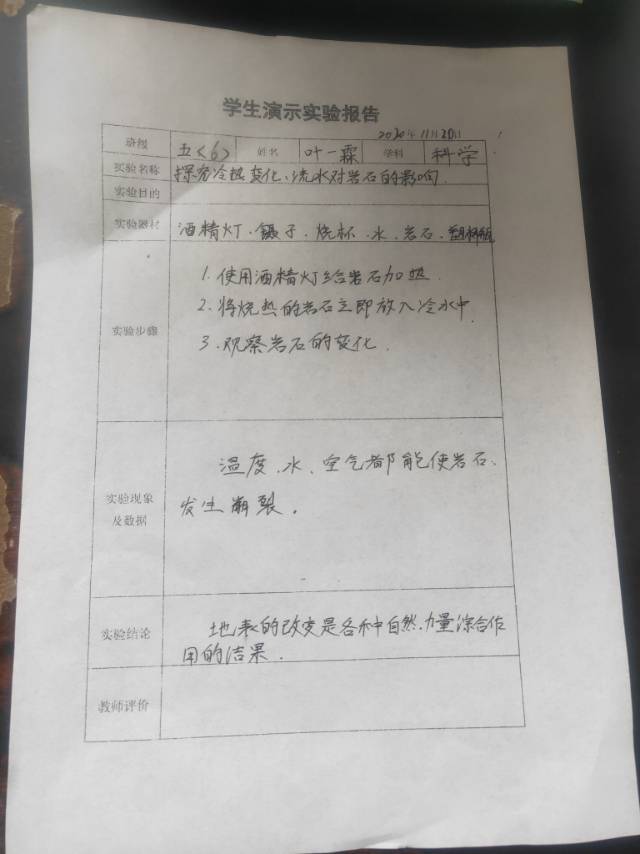 学生演示实验报告
2020年11月20日
班级 五〈6〉 姓名 叶一霖 学科 科学
实验名称 探究冷热变化、流水对岩石的影响
实验目的
实验器材 酒精灯、镊子、烧杯、水、岩石、塑料瓶
实验步骤
1.使用酒精灯给岩石加热
2.将烧热的岩石立即放入冷水中
3.观察岩石的变化.
实验现象
及数据
温度、水、空气都能使岩石、
发生崩裂.
实验结论
地表的改变是各种自然力量综合作
用的洁果.
教师评价